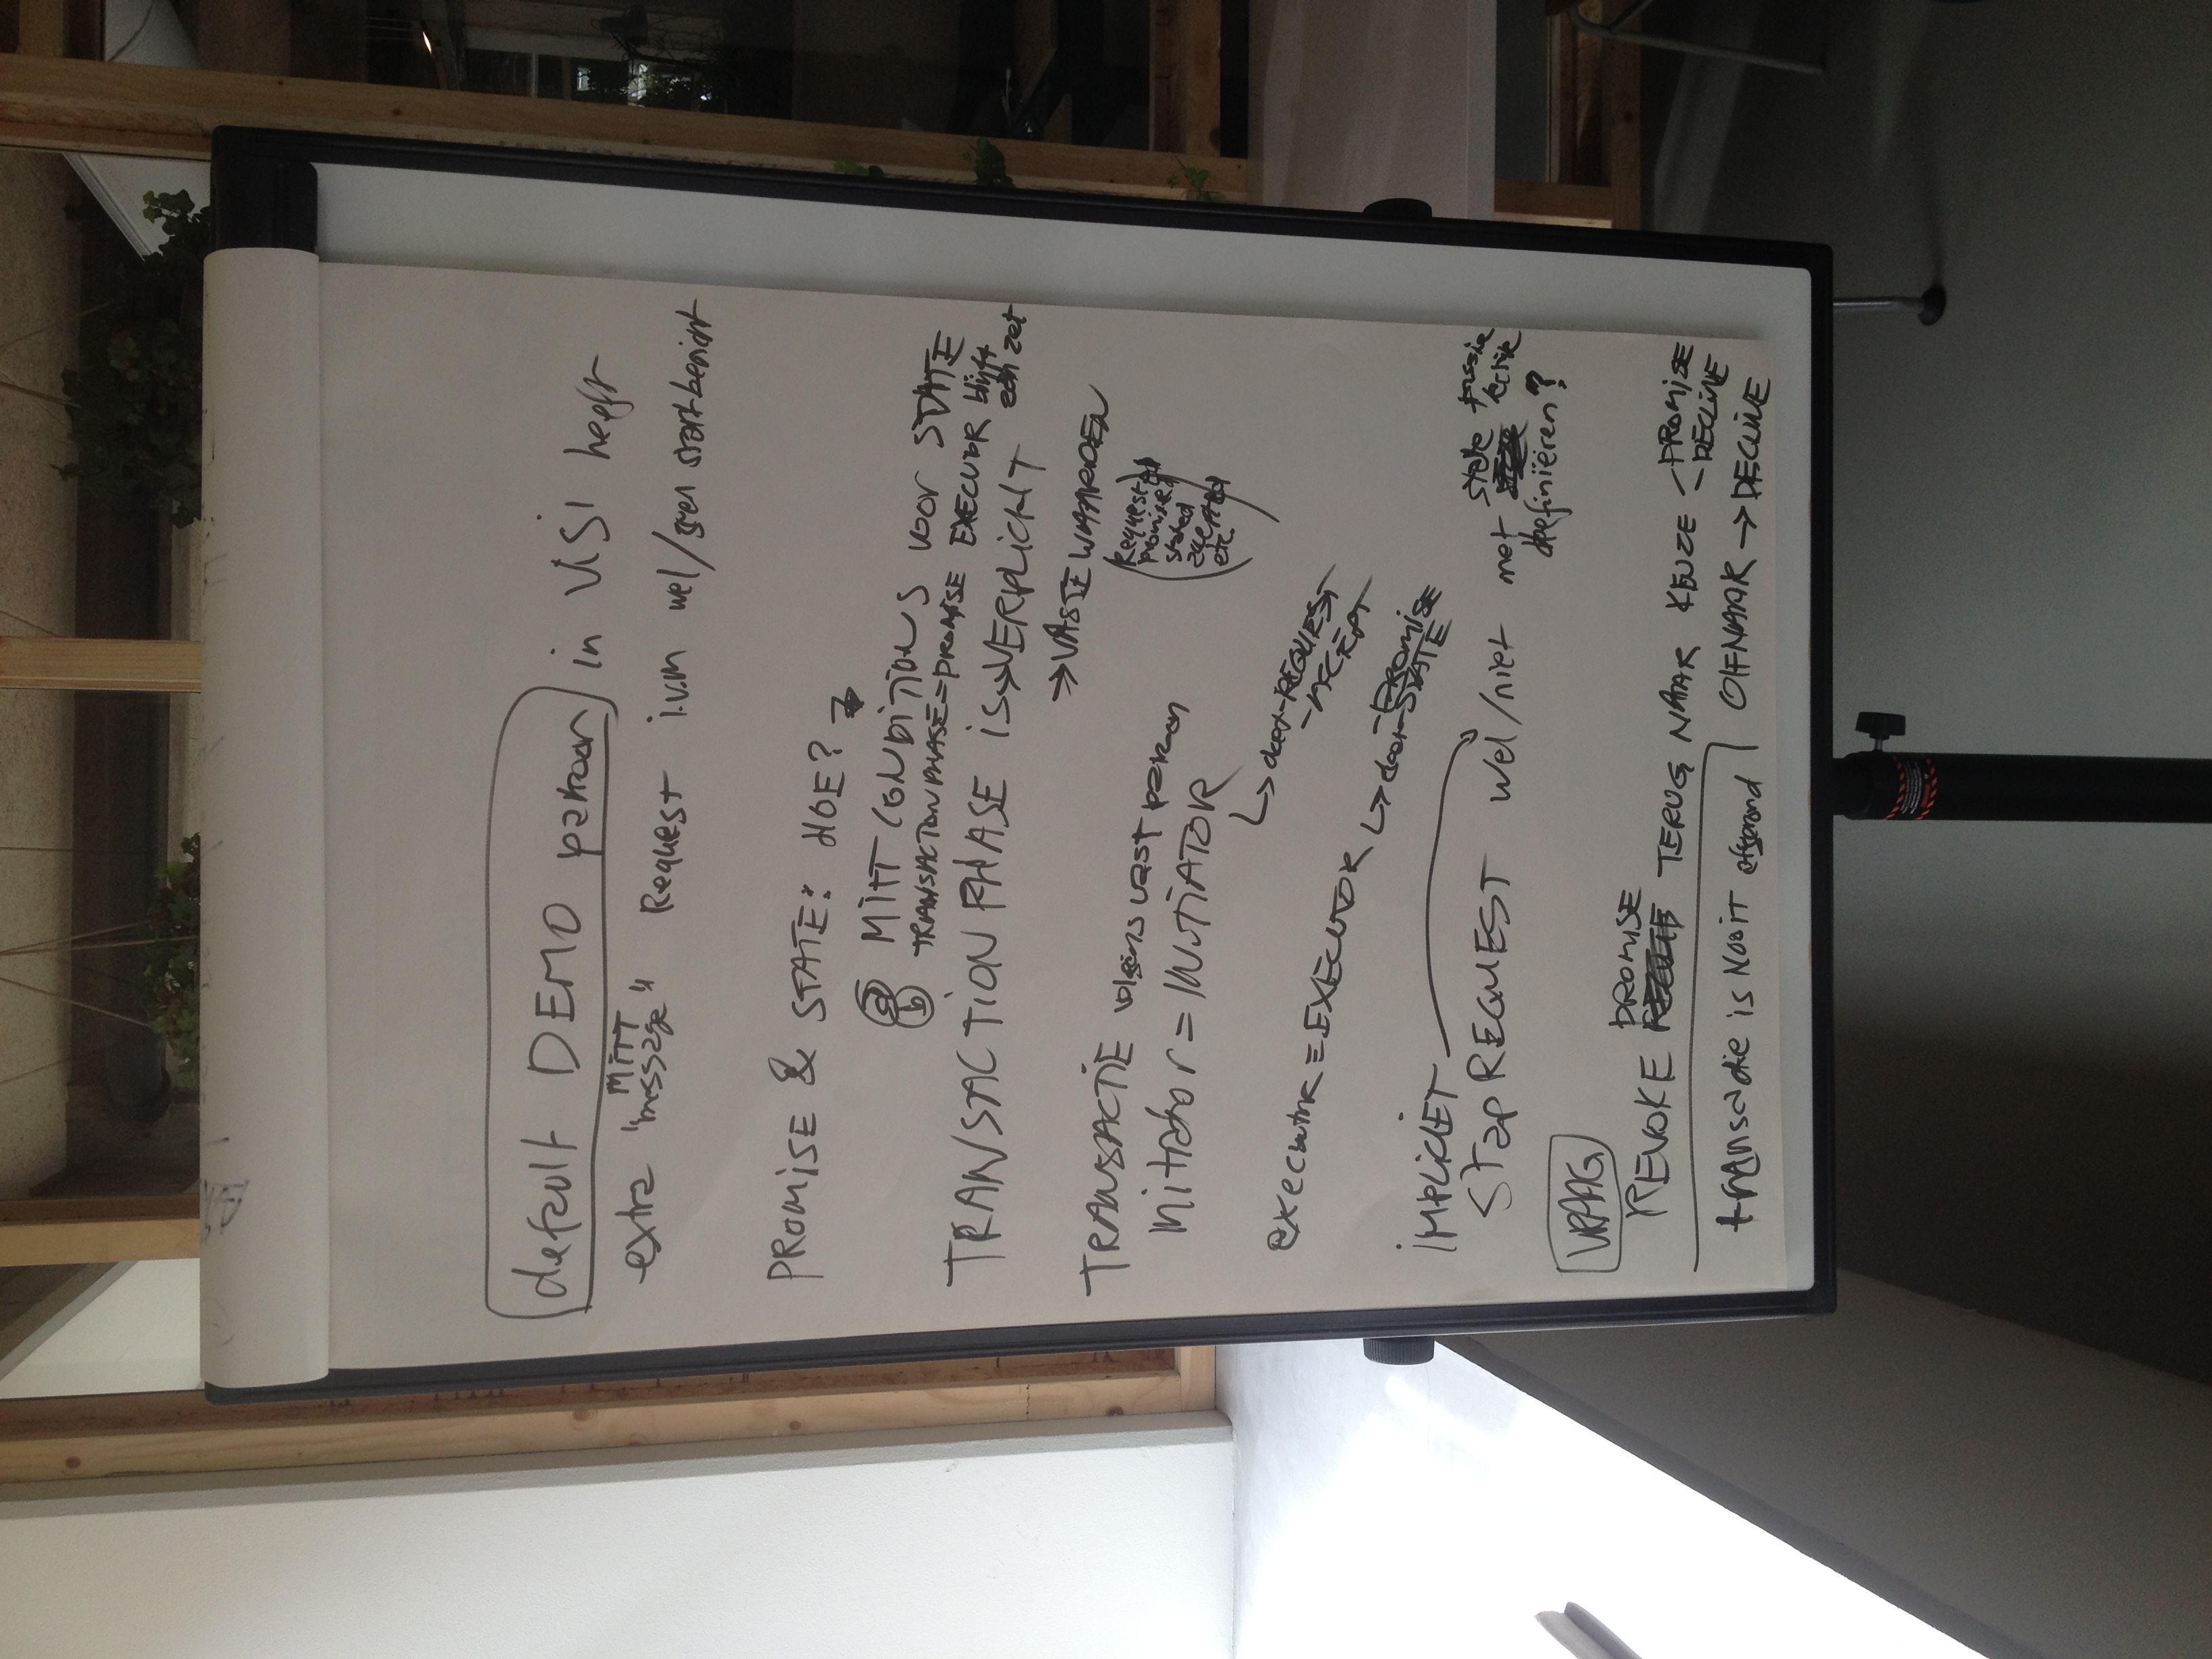 default DEMO patroon in VISI heeft
MITT
extra "message" Request i.v.m wel/geen startbericht
PROMISE & STATE: HOE?
a MITT CONDITIONS voor STATE
b TRANSACTIONPHASE=PROMISE EXECUTOR blijft
aan zet
TRANSACTION PHASE is → VERPLICHT
→ VASTE WAARDEN
(Requested
promised
stated
accepted
etc.)
TRANSACTIE volgens vast patroon
initiator = INITIATOR
↳ doet - REQUEST
- ACCEPT
executor = EXECUTOR
↳ doet - PROMISE
- STATE
IMPLICIET
Stap REQUEST wel/niet met state
definiëren?
VRAAG
REVOKE PROMISE TERUG NAAR KEUZE - PROMISE
- DECLINE
transactie is NOOIT afgerond OF NAAR → DECLINE